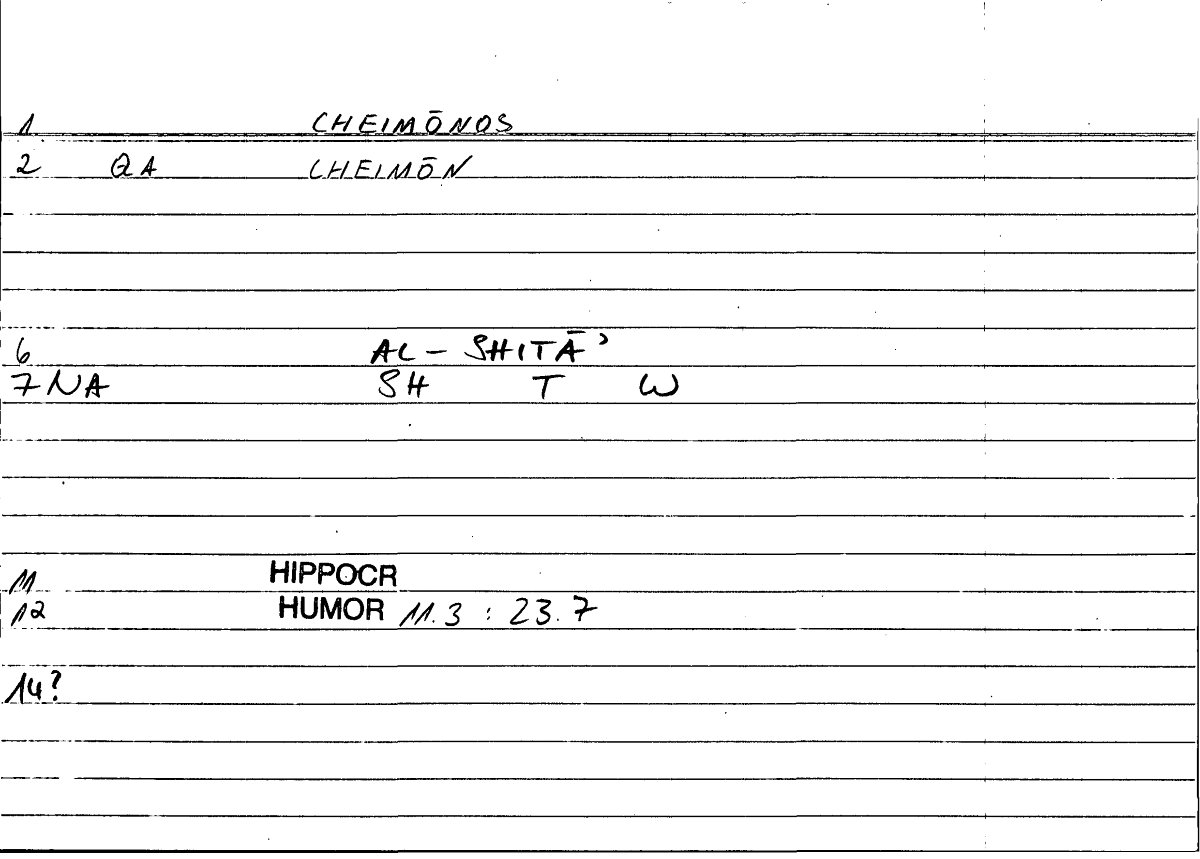 1 CHEIMŌNOS
2 QA CHEIMŌN
6 AL-SHITĀʾ
7 NA SH T W
11 HIPPOCR
12 HUMOR 11.3 : 23.7
14?